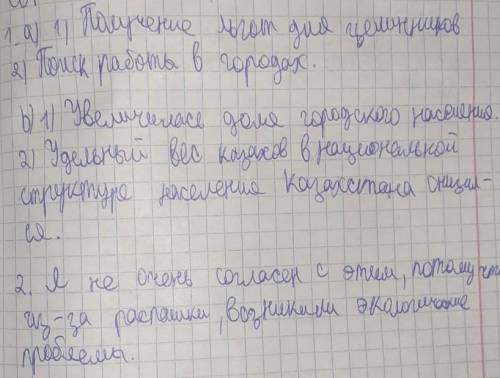 1. а) 1) Получение льгот для целинников
2) Поиск работы в городах.
b) 1) Увеличилась доля городского населения.
2) Удельный вес казахов в национальной
структуре населения Казахстана снизил-
ся.
2. Я не очень согласен с этим, потому что
из-за распашки, возникили экологические
проблемы.